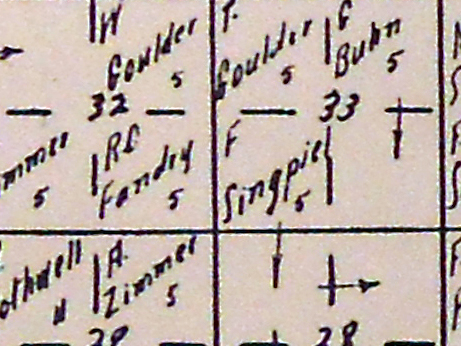 W
Goulder
5
T.
Goulder
5
G
Buhn
5
32
33
mmer
5
RC
Fandry
5
F
Singpiel
5
othwell
4
A.
Zimmer
5
28